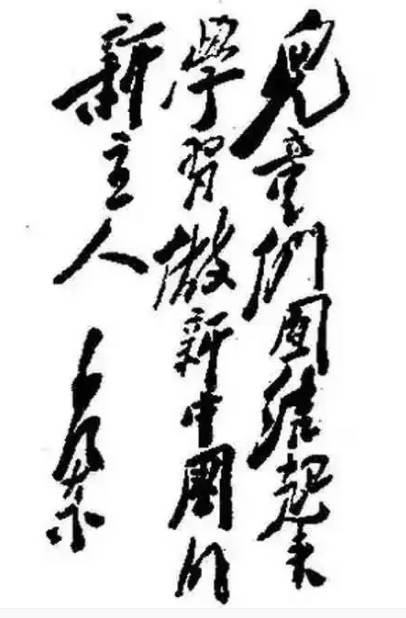 兒童們團結起来
學習做新中國的
新主人
毛澤東